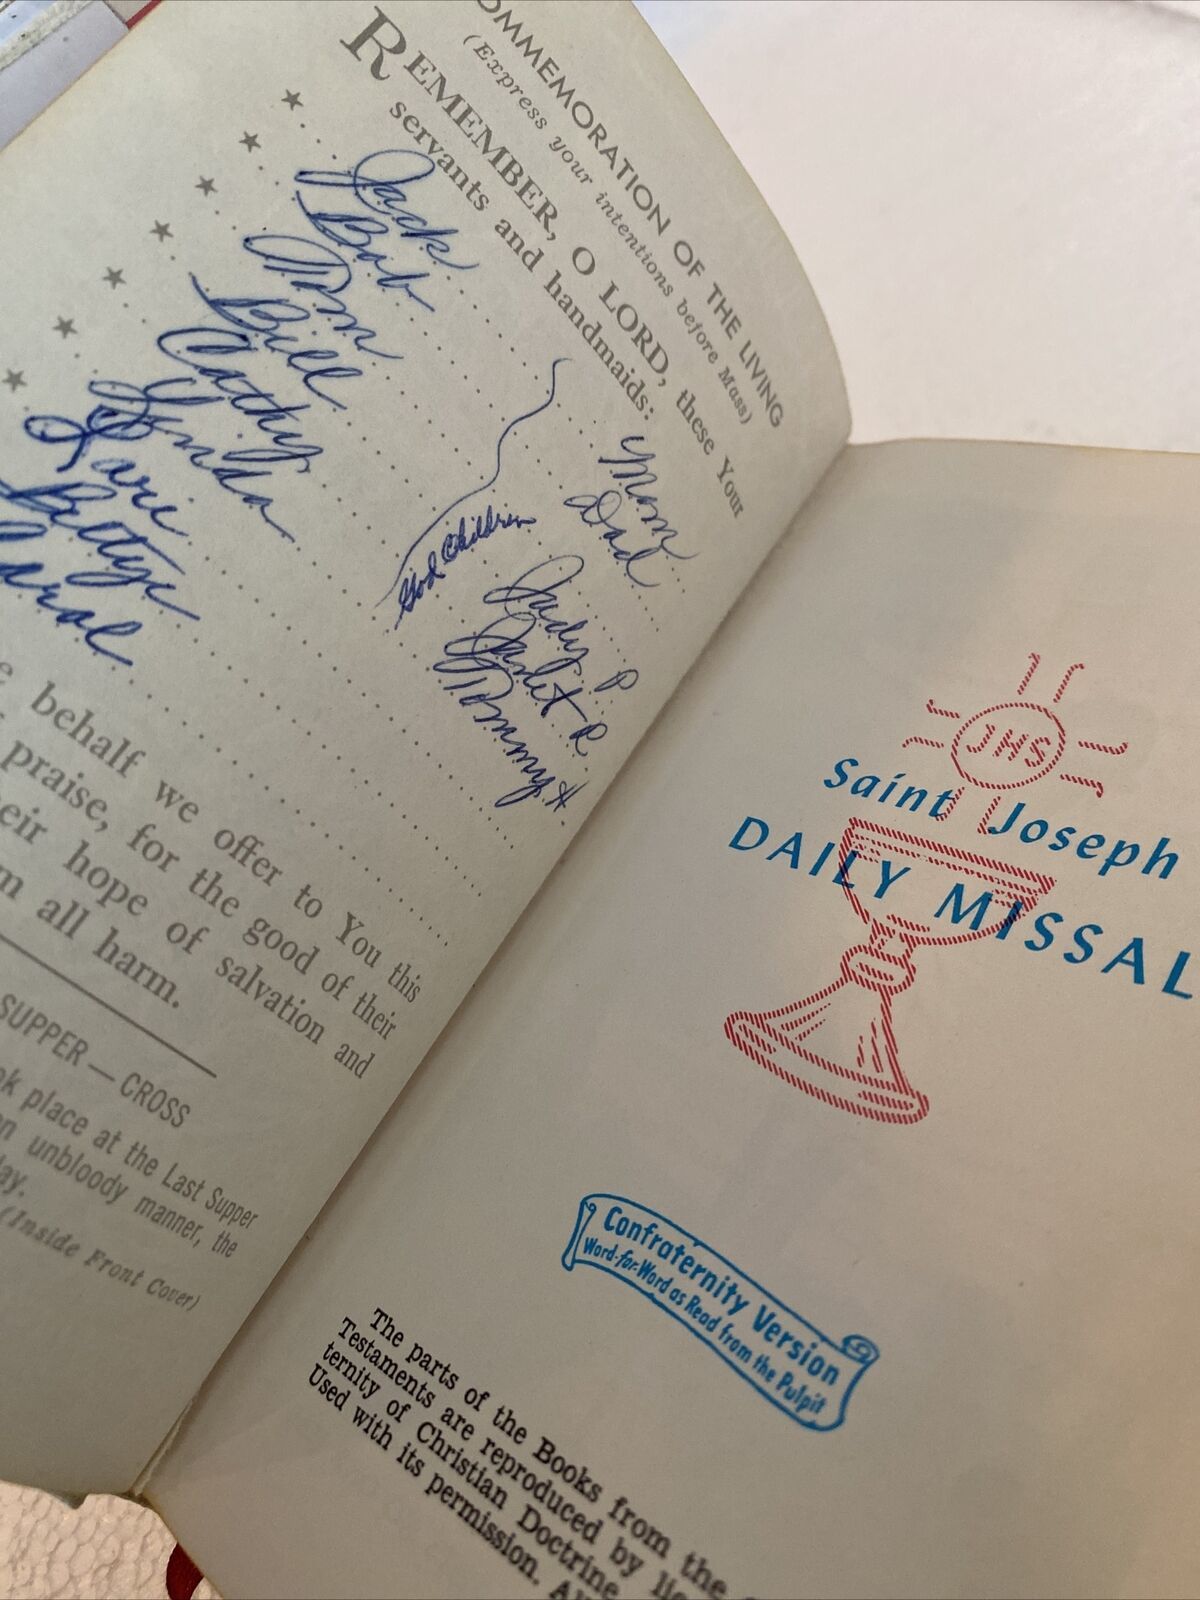 COMMEMORATION OF THE LIVING
(Express your intentions before Mass)
REMEMBER, O LORD, these Your
servants and handmaids:
Jack
Bob
Tom
Bill
Cathy
Lynda
Lari
Bettye
Carol
Mom
Dad
God Children
Judy P
Janet R
Tommy H.
behalf we offer to You this
praise, for the good of their
hope of salvation and
all harm.
SUPPER — CROSS
place at the Last Supper
unbloody manner, the
(Inside Front Cover)
JHS
Saint Joseph
DAILY MISSAL
Confraternity Version
Word-for-Word as Read from the Pulpit
The parts of the Books from the
Testaments are reproduced by
ternity of Christian Doctrine
Used with its permission.